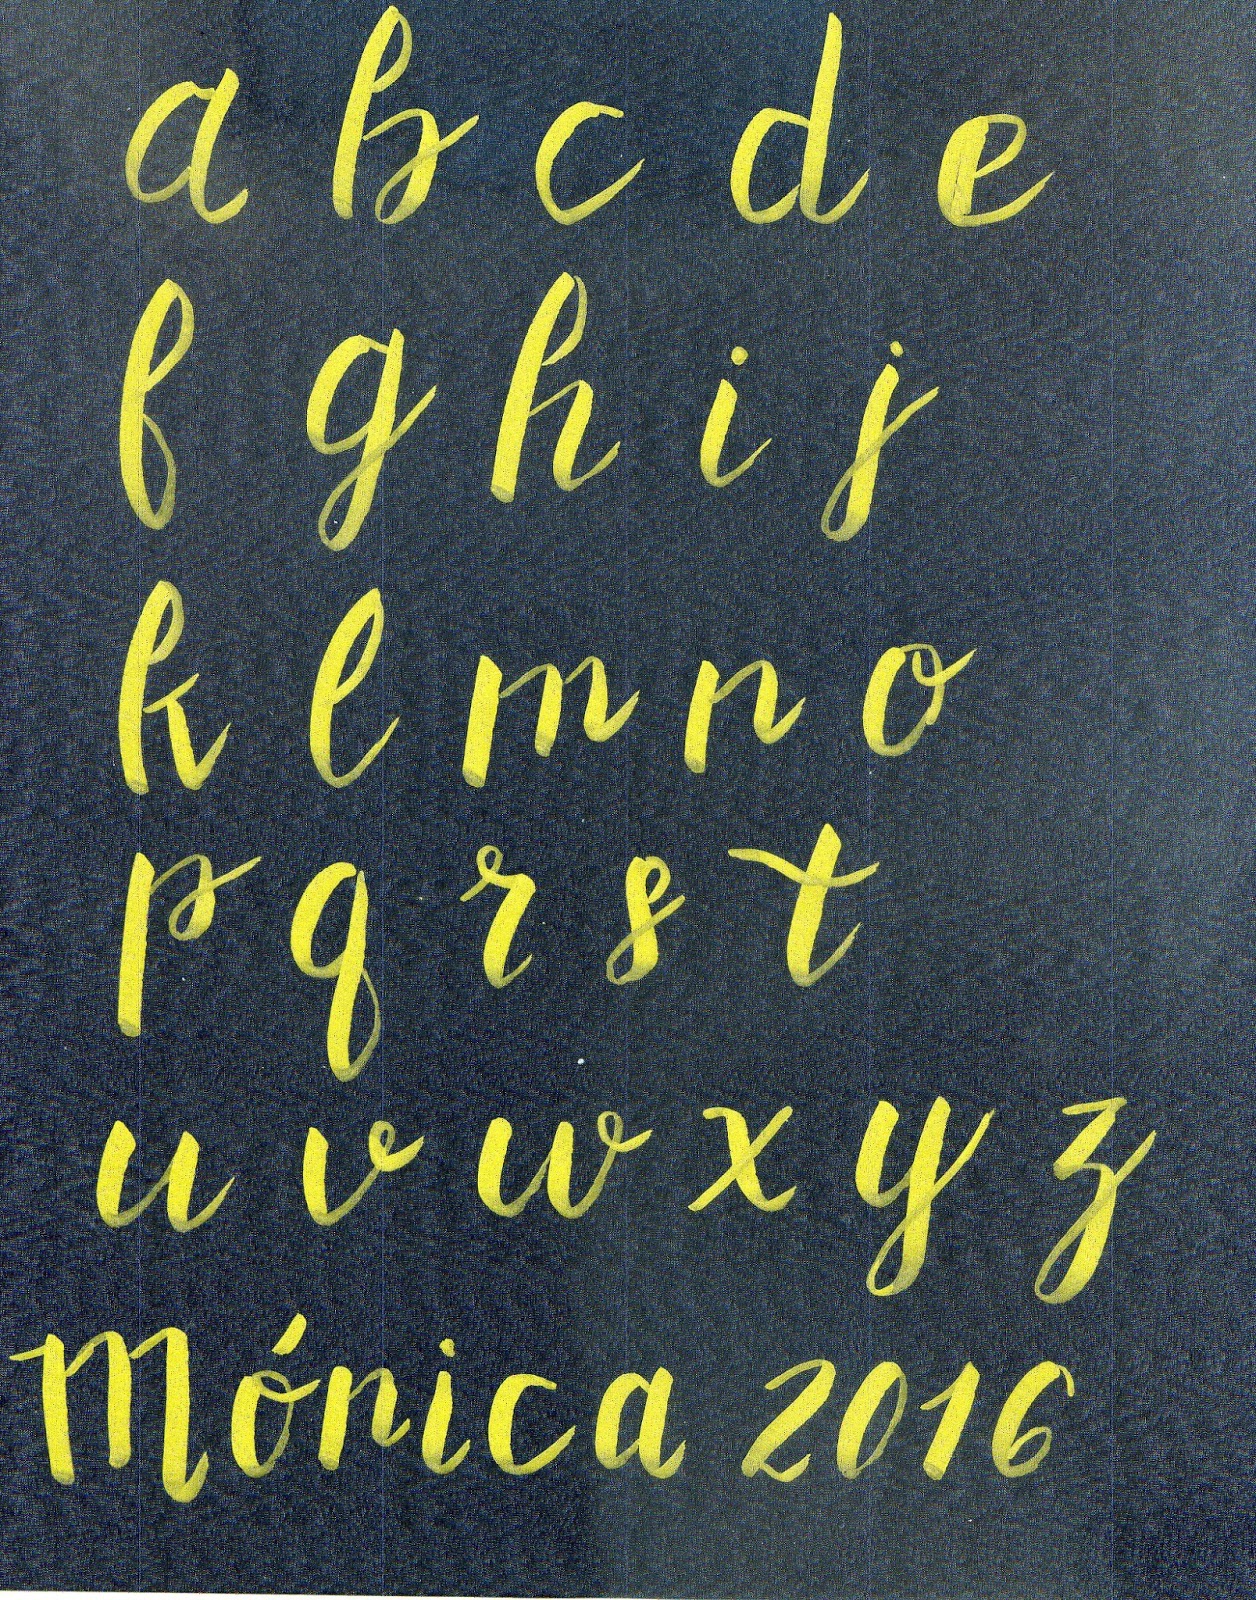 a b c d e
f g h i j
k l m n o
p q r s t
u v w x y z
Mónica 2016